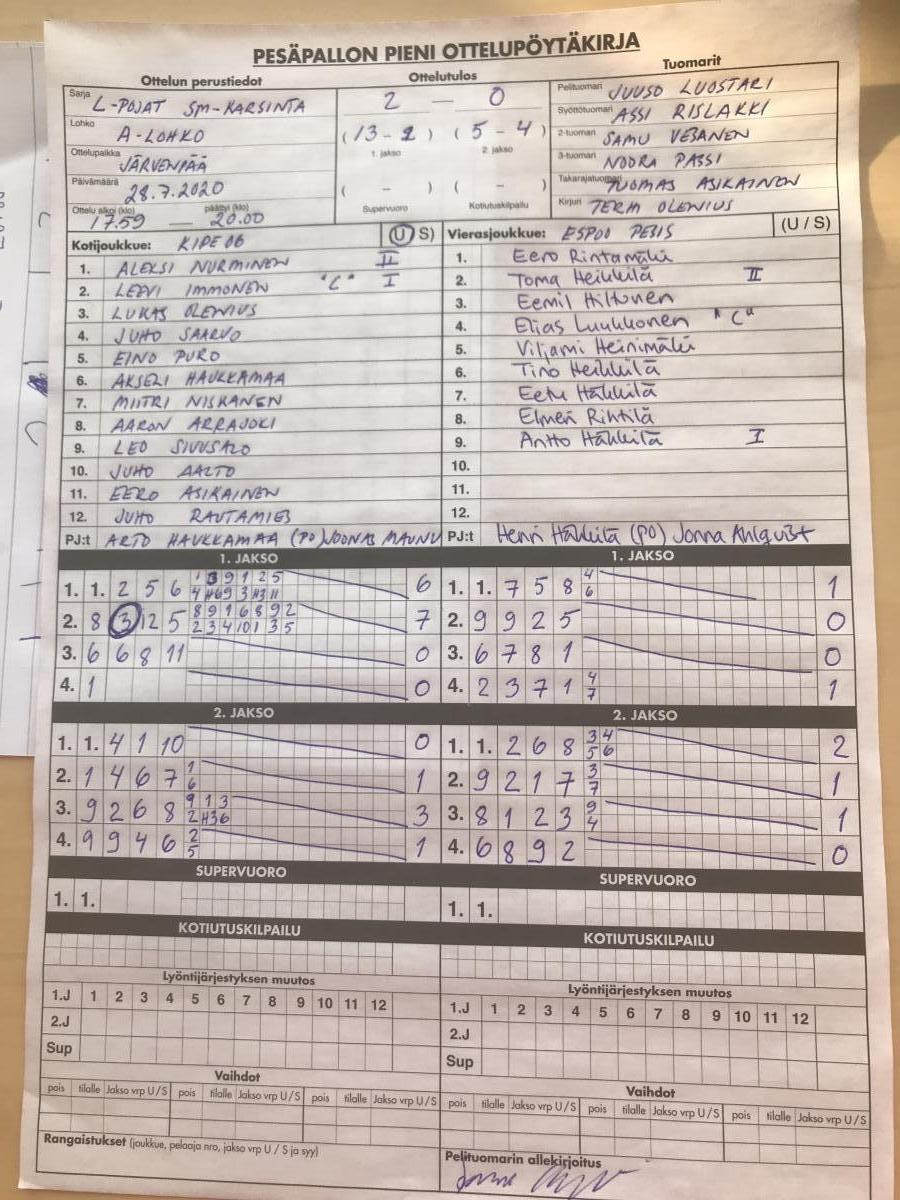 PESÄPALLON PIENI OTTELUPÖYTÄKIRJA
Ottelun perustiedot
Ottelutulos
Tuomarit
Sarja L-POJAT SM-KARSINTA
Lohko A-LOHKO
Ottelupaikka JÄRVENPÄÄ
Päivämäärä 28.7.2020
Ottelu alkoi (klo) 17.59 päättyi (klo) 20.00
2 — 0
(13-2) (5-4)
1. jakso 2. jakso
( - ) ( - )
Supervuoro Kotiutuskilpailu
Pelituomari JUUSO LUOSTARI
Syöttötuomari ASSI RISLAKKI
2-tuomari SAMU VEBANEN
3-tuomari NOORA PASSI
Takarajatuomari TUOMAS ASIKAINEN
Kirjuri TERHI OLENIUS
Kotijoukkue: KIPE 06 (U/S)
1. ALEKSI NURMINEN II
2. LEEVI IMMONEN "C" I
3. LUKAS OLENIUS
4. JUHO SAARVO
5. EINO PURO
6. AKSELI HAUKKAMAA
7. MIITRI NISKANEN
8. AARON ARRAJOKI
9. LEO SIVUSALO
10. JUHO AALTO
11. EERO ASIKAINEN
12. JUHO RAUTAMIES
PJ:t ARTO HAUKKAMAA (PO) JOONAS MAUNU
Vierasjoukkue: ESPOO PESIS (U / S)
1. Eero Rintamäki
2. Toma Heikkilä II
3. Eemil Hiltunen
4. Elias Luukkonen "C"
5. Viljami Heinimäki
6. Tino Heikkilä
7. Eetu Häkkilä
8. Elmeri Rintilä
9. Antto Häkkilä I
10.
11.
12.
PJ:t Henri Häkkilä (PO) Jonna Ahlqvist
1. JAKSO
1. 1. 2 5 6 6
2. 8 3 12 5 8 9 1 6 8 9 2 7
2 3 4 10 1 3 5
3. 6 6 8 11 0
4. 1 0
1. JAKSO
1. 1. 7 5 8 4 1
6
2. 9 9 2 5 0
3. 6 7 8 1 0
4. 2 3 7 1 4 1
7
2. JAKSO
1. 1. 4 1 10 0
2. 1 4 6 7 1 1
6
3. 9 2 6 8 9 1 3 3
2 H3 6
4. 9 9 4 6 2 1
5
2. JAKSO
1. 1. 2 6 8 3 4 2
5 6
2. 9 2 1 7 3 1
7
3. 8 1 2 3 9 1
4
4. 6 8 9 2 0
SUPERVUORO
1. 1.
SUPERVUORO
1. 1.
KOTIUTUSKILPAILU
KOTIUTUSKILPAILU
Lyöntijärjestyksen muutos
1.J 1 2 3 4 5 6 7 8 9 10 11 12
2.J
Sup
Lyöntijärjestyksen muutos
1.J 1 2 3 4 5 6 7 8 9 10 11 12
2.J
Sup
Vaihdot
pois tilalle Jakso vrp U/S pois tilalle Jakso vrp U/S pois tilalle Jakso vrp U/S
Vaihdot
pois tilalle Jakso vrp U/S pois tilalle Jakso vrp U/S pois tilalle Jakso vrp U/S
Rangaistukset (joukkue, pelaaja nro, jakso vrp U / S ja syy)
Pelituomarin allekirjoitus